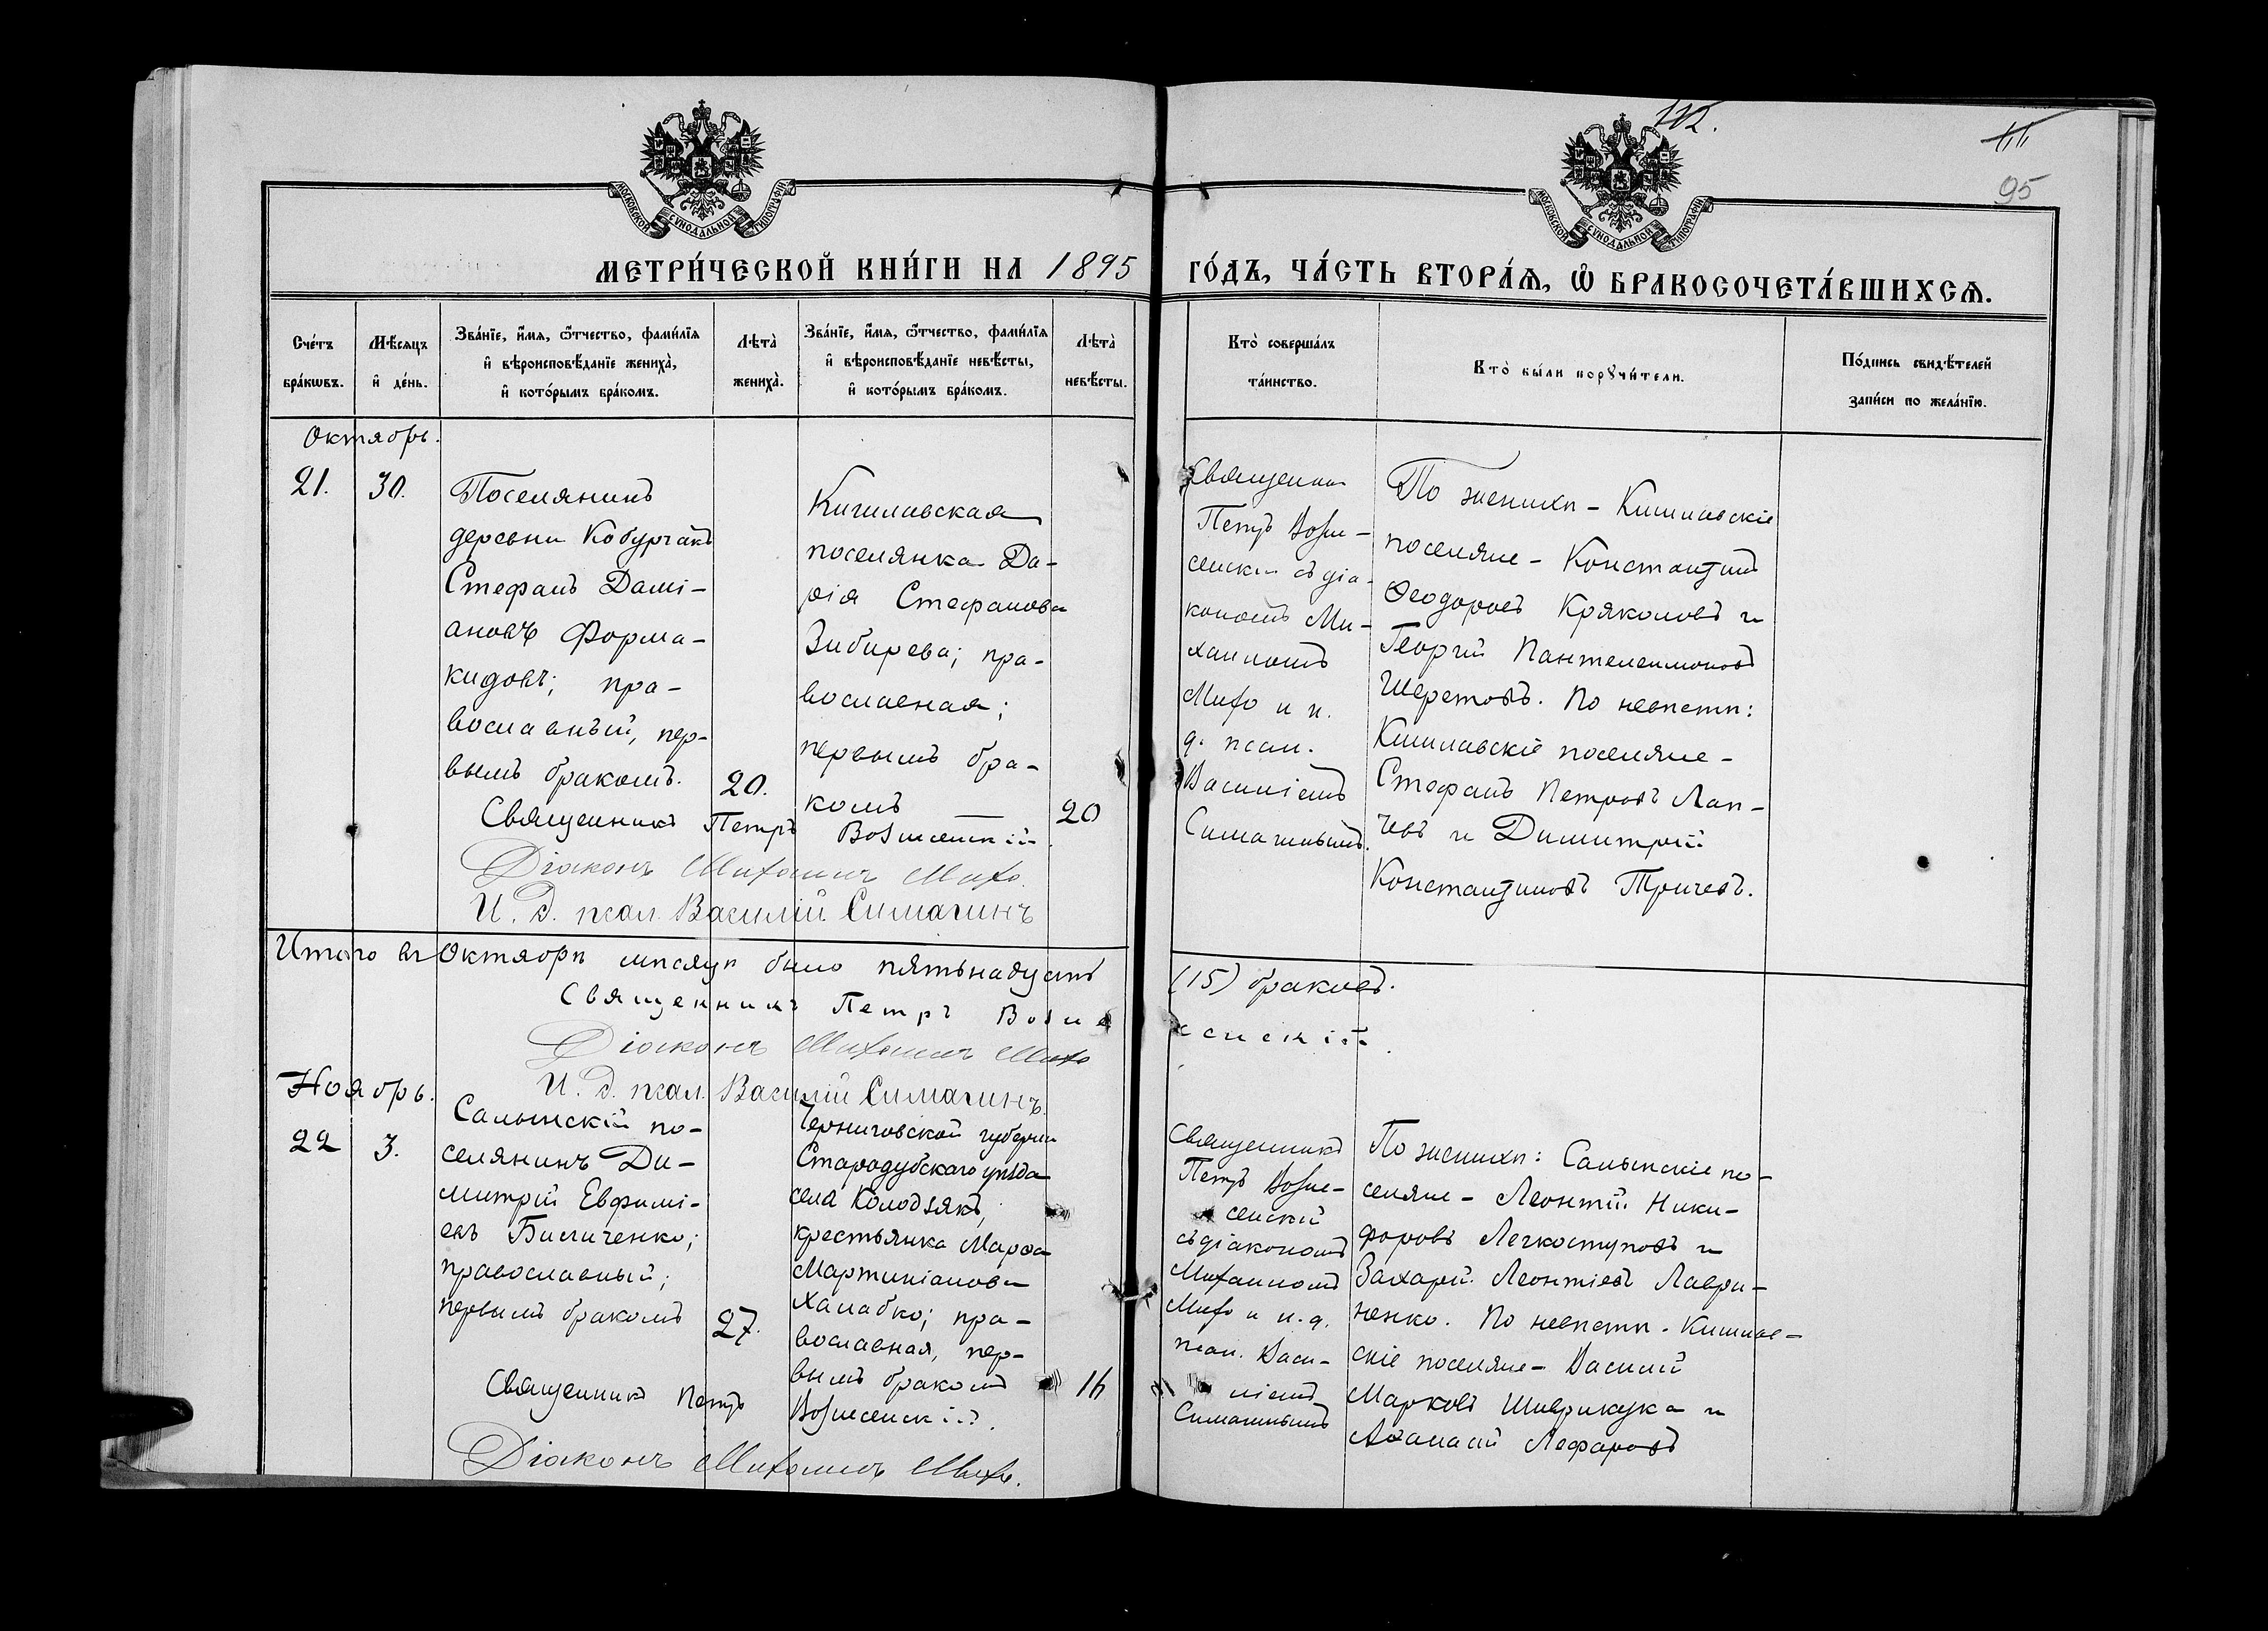 112.
11
95
МОСКОВСКОЙ СУНОДАЛЬНОЙ ТИПОГРАФІИ
МОСКОВСКОЙ СУНОДАЛЬНОЙ ТИПОГРАФІИ
МЕТРИ́ЧЕСКОЙ КНИ́ГИ НА 1895 ГО́ДЪ, ЧА́СТЬ ВТОРА́Ѧ, Ѡ҆ БРАКОСОЧЕТА́ВШИХСѦ.
Сче́тъ
бра́кѡвъ.
Мѣ́сяцъ
и҆ де́нь.
Зва́нїе, и҆́мя, ѻ҆́тчество, фами́лїя
и҆ вѣроисповѣ́данїе жениха̀,
и҆ кото́рымъ бра́комъ.
Лѣта̀
жениха̀.
Зва́нїе, и҆́мя, ѻ҆́тчество, фами́лїя
и҆ вѣроисповѣ́данїе невѣ́сты,
и҆ кото́рымъ бра́комъ.
Лѣта̀
невѣ́сты.
Кто̀ соверша́лъ
та́инство.
Кто̀ бы́ли порꙋчи́тели.
По́дпись свидѣ́телей
за́писи по жела́нїю.
Октябрь.
21.
30.
Поселянинъ
деревни Кобурчакъ
Стефанъ Дамі-
ановъ Форма-
кидовъ; пра-
вославный, пер-
вымъ бракомъ.
20.
Кишлавская
поселянка Да-
рія Стефанова
Зибирева; пра-
вославная;
первымъ бра-
комъ
20
Священникъ Петръ Вознесенскій.
Діаконъ Михаилъ Михо.
И. д. псал. Василій Симагинъ
Священник
Петръ Возне-
сенскій съ діа-
кономъ Ми-
хаиломъ
Михо и и.
д. псал.
Василіемъ
Симагинымъ.
По женихѣ - Кишлавскіе
поселяне - Константинъ
Ѳеодоровъ Кряколовъ и
Георгій Пантелеимоновъ
Шеретовъ. По невѣстѣ:
Кишлавскіе поселяне -
Стефанъ Петровъ Лап-
чевъ и Димитрій
Константиновъ Тричевъ.
Итого въ Октябрѣ мѣсяцѣ было пятьнадцать (15) браковъ.
Священникъ Петръ Вознесенскій.
Діаконъ Михаилъ Михо
И. д. псал. Василій Симагинъ.
Ноябрь.
22
3.
Салынскій по-
селянинъ Ди-
митрій Евфимі-
евъ Бисиченко;
православный;
первымъ бракомъ
27.
Черниговской губерніи
Стародубскаго уѣзда
села Колодзякъ,
крестьянка Марѳа
Мартиніанова
Халабко; пра-
вославная, пер-
вымъ бракомъ
16
Священникъ Петръ Вознесенскій.
Діаконъ Михаилъ Михо.
Священникъ
Петръ Возне-
сенскій
съ діакономъ
Михаиломъ
Михо и и. д.
псал. Васи-
ліемъ
Симагинымъ
По женихѣ: Салынскіе по-
селяне - Леонтій Ники-
форовъ Легкоступовъ и
Захарій Леонтіевъ Лаври-
ненко. По невѣстѣ - Кишлав-
скіе поселяне - Василій
Марковъ Шиврикука и
Аѳанасій Лефаровъ